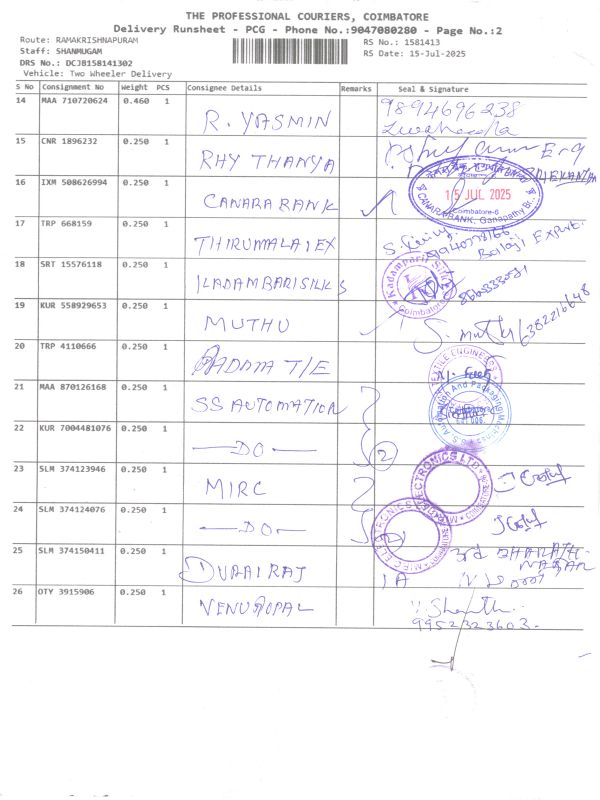 THE PROFESSIONAL COURIERS, COIMBATORE
Delivery Runsheet - PCG - Phone No.:9047080280 - Page No.:2
Route: RAMAKRISHNAPURAM
Staff: SHANMUGAM
DRS No.: DCJB158141302
Vehicle: Two Wheeler Delivery
RS No.: 1581413
RS Date: 15-Jul-2025
S No Consignment No Weight PCS Consignee Details Remarks Seal & Signature
14 MAA 710720624 0.460 1 R. YASMIN 9894696238
15 CNR 1896232 0.250 1 RHY THANYA
16 IXM 508626994 0.250 1 CANARA BANK
15 JUL 2025
Coimbatore-6
CANARA BANK, Ganapathy Br.
17 TRP 668159 0.250 1 THIRUMALAI EX
Balaji Export.
18 SRT 15576118 0.250 1 ILADAMBARI SILKS
Kadampari Silks
Coimbatore
19 KUR 558929653 0.250 1 MUTHU S. muthu 6382216648
20 TRP 4110666 0.250 1 PADMA T/E
TEXTILE ENGINEERS
21 MAA 870126168 0.250 1 SS AUTOMATION
22 KUR 7004481076 0.250 1 DO 2
23 SLM 374123946 0.250 1 MIRC
24 SLM 374124076 0.250 1 DO 2
MIRC ELECTRONICS LTD
25 SLM 374150411 0.250 1 DURAIRAJ 1A 3rd BHARATHI NAGAR
26 OTY 3915906 0.250 1 VENUGOPAL
9952323603.